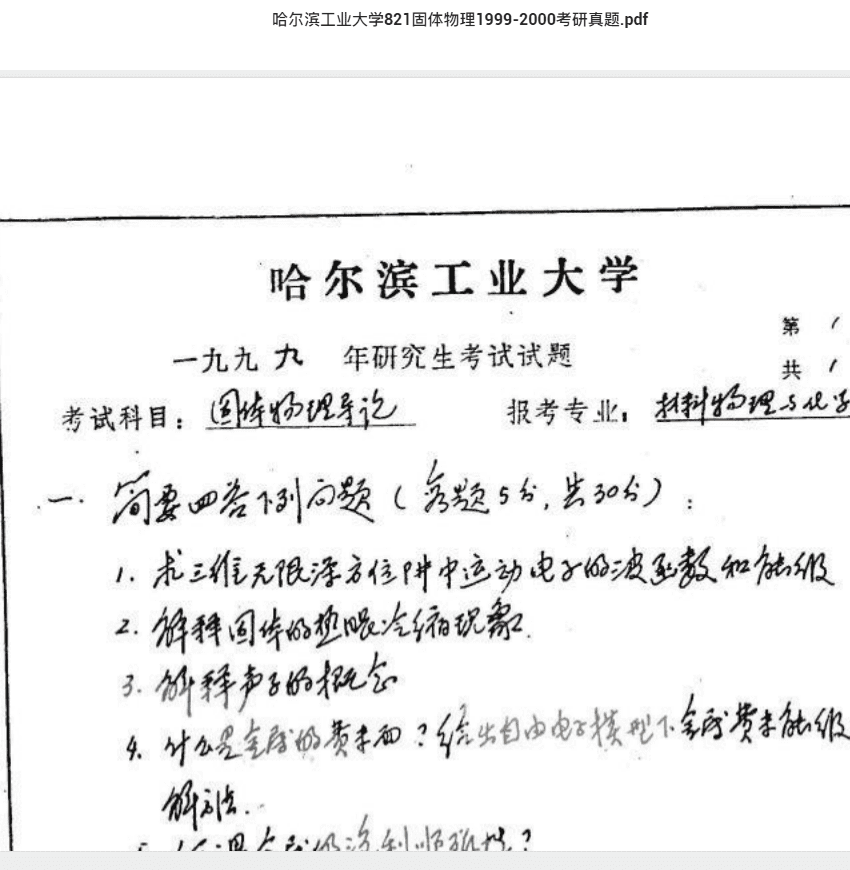 哈尔滨工业大学821固体物理1999-2000考研真题.pdf
哈尔滨工业大学
第 1
一九九九 年研究生考试试题
共 1
考试科目：固体物理导论 报考专业：材料物理与化学
一. 简要回答下列问题（每题5分，共30分）：
1. 求三维无限深方位阱中运动电子的波函数和能级
2. 解释固体的热膨冷缩现象.
3. 解释声子的概念
4. 什么是金属的费米面？给出自由电子模型下金属费米能级
解方法.